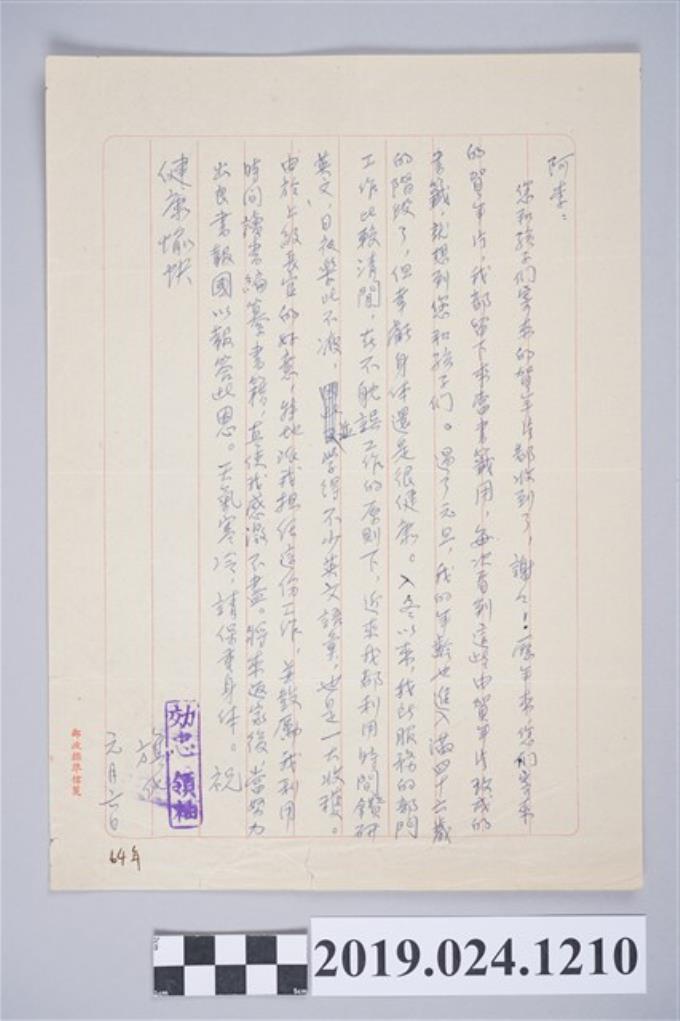 阿李：
您和孩子們寄來的賀年片都收到了，謝々！歷年來您們寄來
的賀年片，我都留下來當書籤用，每次看到這些由賀年片改成的
書籤，就想到您和孩子們。過了元旦，我的年齡也進入滿四十六歲
的階段了，但幸虧身体還是很健康。入冬以來，我所服務的部門
工作比較清閒，在不耽誤工作的原則下，近來我都利用時間鑽研
英文，日夜樂此不疲，並學得不少英文語彙，也是一大收穫。
由於上級長官的好意，特地派我担任這份工作，並鼓勵我利用
時间讀書編纂書籍，真使我感激不盡。將來返家後，當努力
出良書報國以報答此恩。天氣寒冷，請保重身体。祝
健康愉快
元月六日
効忠領袖
64年
郵政標準信箋
2019.024.1210
5cm